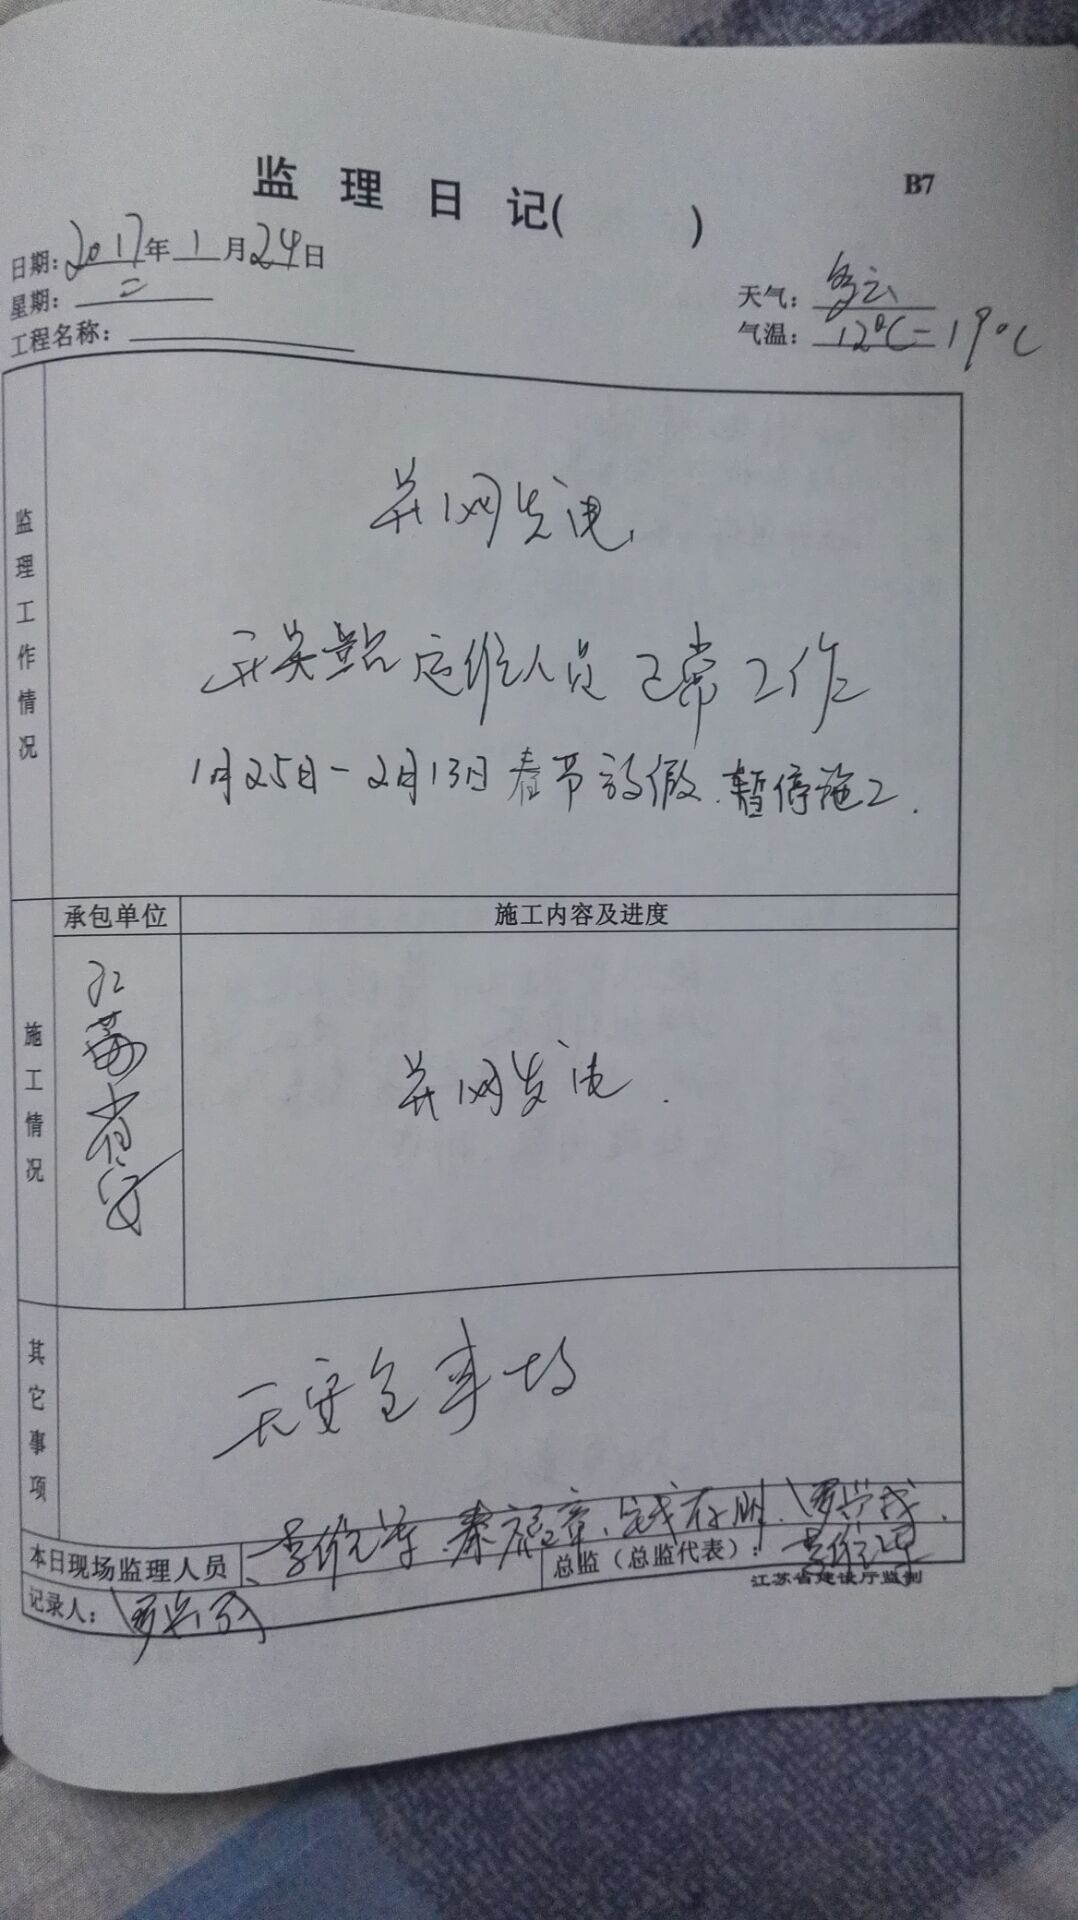 监理日记(    )
B7
日期: 2017年1月24日
星期: 二
天气: 多云
工程名称:
气温: 12℃-19℃
监理工作情况
并网发电
运维人员正常工作
1月25日-2月13日春节放假.暂停施工.
承包单位
施工内容及进度
施工情况
江苏省安
并网发电.
其它事项
无安全事故
本日现场监理人员
总监（总监代表）:
江苏省建设厅监制
记录人: